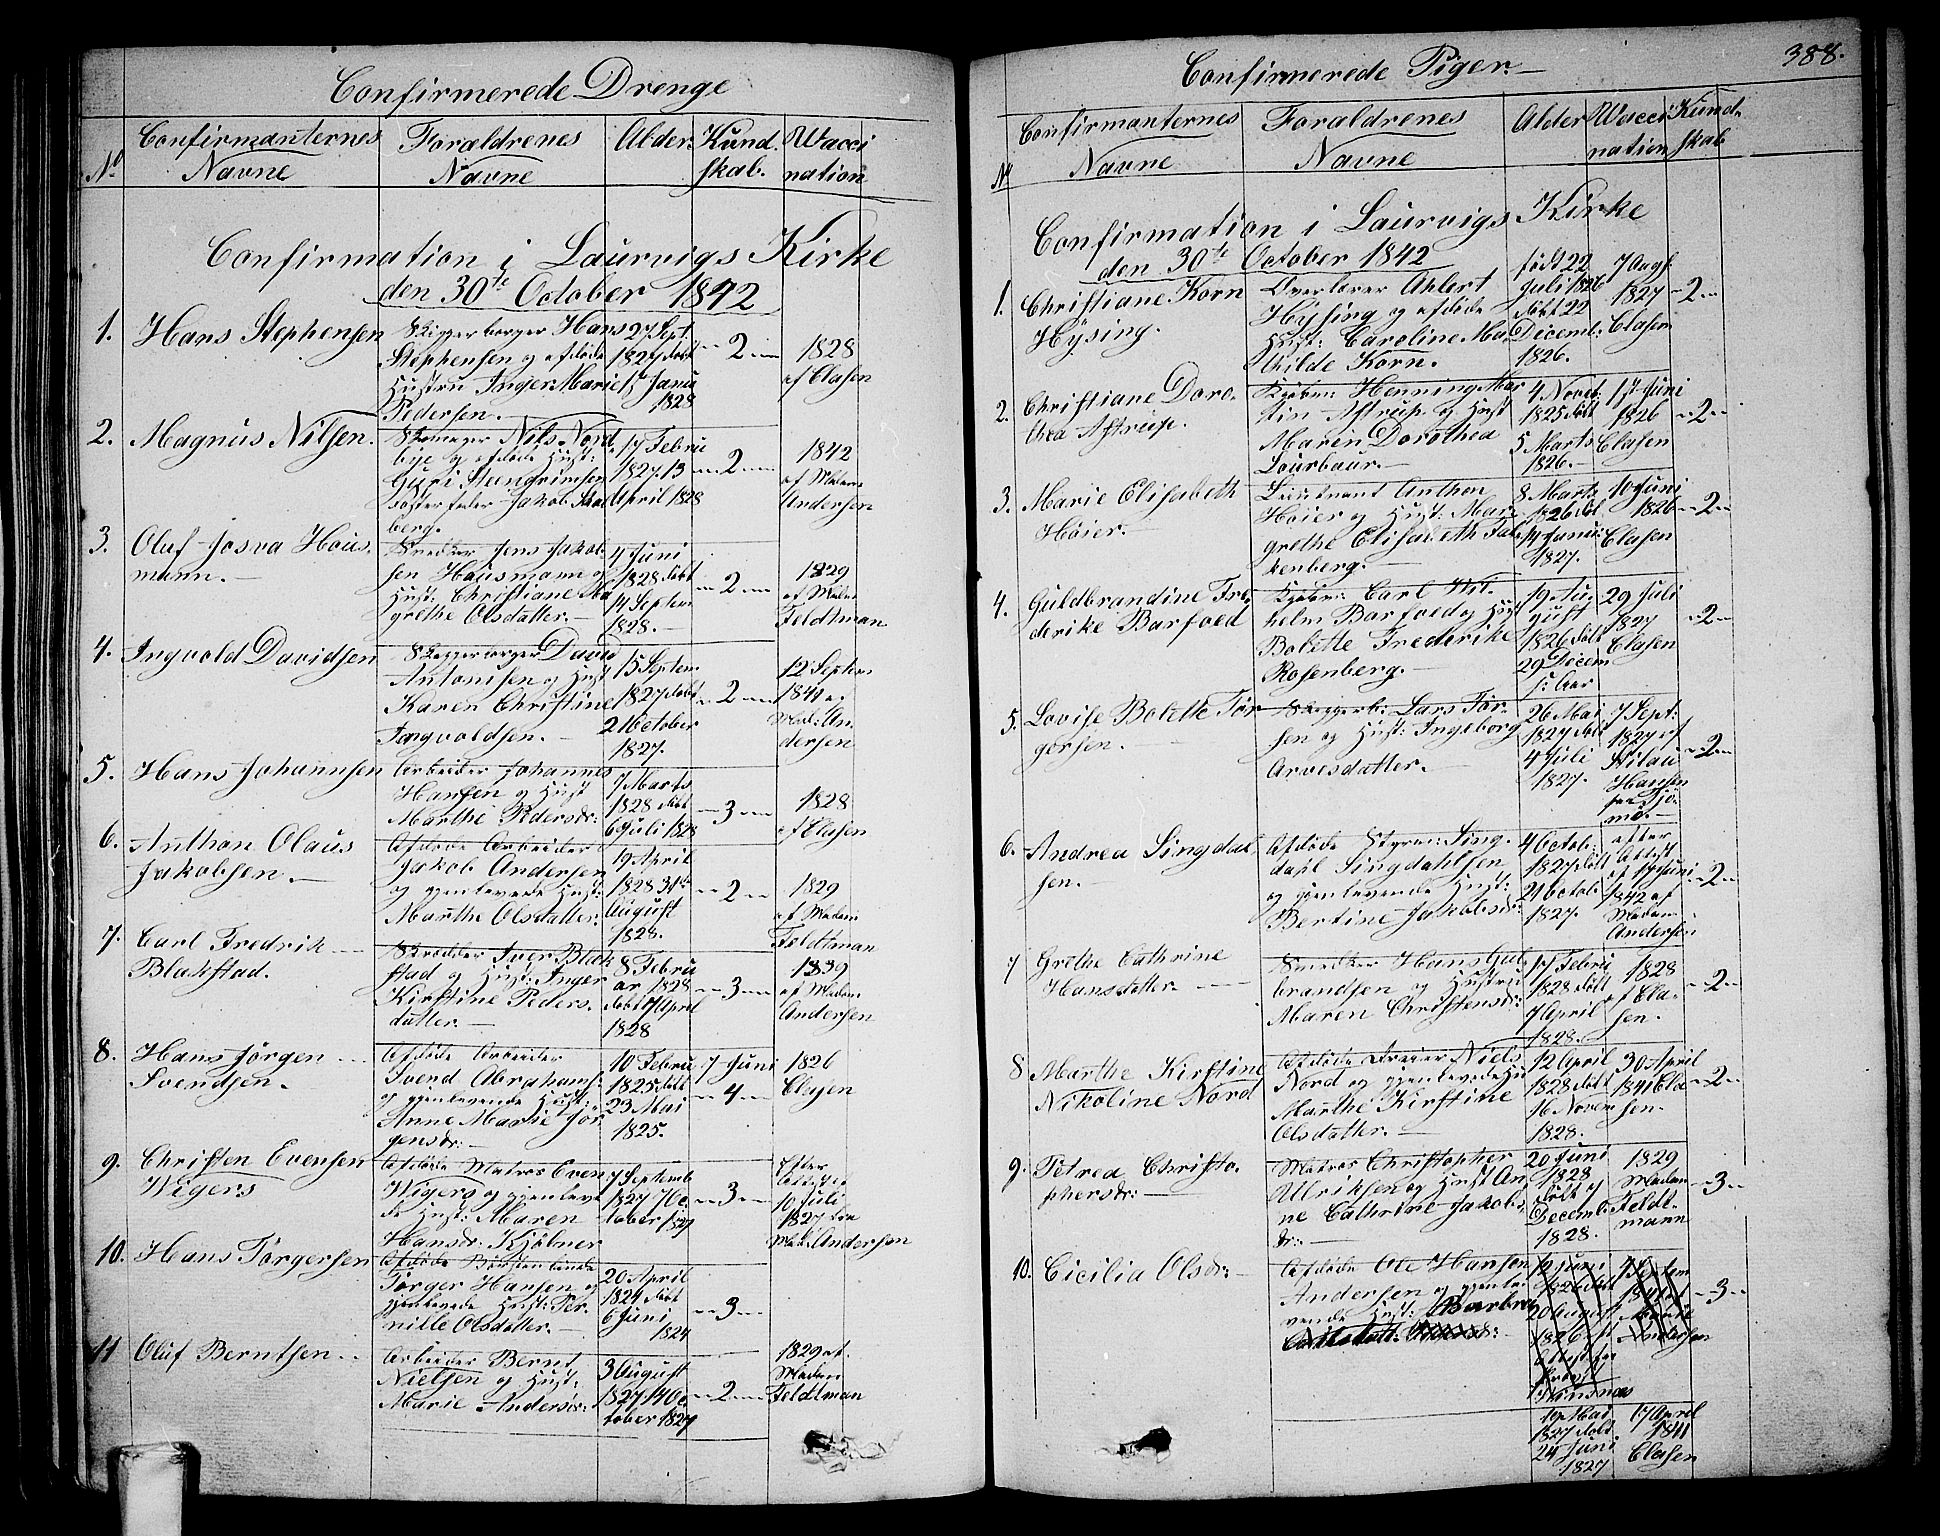 Confirmerede Drenge
No Confirmanternes Navne
Foraldrenes Navne
Alder:
Kund. skab.
Wacci nation
Confirmation i Laurvigs Kirke
den 30te October 1842
1. Hans Stephensen
Skipperborger Hans
Stephensen og afdøde
Hustru Inger Marie
Pedersen.
27 Sept
1827 døbt
15 Janu
1828
2
1828
af Clasen
2. Magnus Nilsen.
Skomager Nils Nord
bye og afdøde Hust:
Guri Steengrimsen
fosterfader Jakob
berg.
17 Febru
1827 13
April 1828
2
1842
af Madam
Andersen
3. Oluf Josva Haus
mann.
Snedker Jens Jakob
sen Hausmann og
Hust: Christiane Ma
grethe Olsdatter.
4 Juni
1828 døbt
14 Septem
1828.
2
1829
af Madm
Feldtman
4. Ingvold Davidsen
Skipperborger David
Antonisen og Hust
Karen Christine
Ingvoldsen.
15 Septem
1827 døbt
21 October
1827.
2
12 Septem
1841 af
Mad: An
dersen
5. Hans Johannsen
Arbeider Johannes
Hansen og Hust
Marthe Pedersdr:
7 Marts
1828 døbt
6 Juli 1828
3
1828
af Clasen
6. Anthon Olaus
Jakobsen.
Afdøde Arbeider
Jakob Andersen
og gjenlevende Hust:
Marthe Olsdatter.
19 April
1828 31te
August
1828.
2
1829
af Madam
Feldtman
7. Carl Fredrik
Blakstad.
Skrædder Iver Blak
stad og Hust: Inger
Kirstine Peders
datter.
8 Febru
ar 1828
døbt 7 April
1828
3
1839
af Madam
Andersen
8. Hans Jörgen
Svendsen.
Afdøde Arbeider
Svend Abrahams
og gjenlevende Hust:
Anne Marie Jör
gensdr:
10 Febru
1825 døbt
23 Mai
1825.
7 Juni
4
1826
Clasen
9. Christen Evensen
Wigers
Afdøde Matros Even
Wigers og gjenleve
de Hust: Maren
Hansdr: Kjöbner
7 Septemb
1827 7 Oc
tober 1827
3
Efter
Attest af
10 Juli
1827 fra
Mad: Andersen
10. Hans Törgersen
Afdøde Börstenbinder
Törger Hansen og
gjenlevende Hust: Per
nille Olsdatter.
20 April
1824 døbt
6 Juni
1824
3
11 Oluf Berntsen
Arbeider Bernt
Nielsen og Hust:
Marie Andersdr:
3 August
1827 14 Oc
tober 1827
2
1829 af
Madam
Feldtman
Confirmerede Piger.
388.
No Confirmanternes Navne
Foraldrenes Navne
Alder
Wacci nation
Kund. skab
Confirmation i Laurvigs Kirke
den 30te October 1842
1. Christiane Korn
Hÿsing.
Overlærer Ahlert
Hÿsing og afdøde
Hust: Caroline Ma
thilde Korn.
født 22
Juli 1826
døbt 22
Decemb:
1826.
7 Augs.
1827
Clasen
2
2. Christiane Doro
thea Astrup.
Kjøbm: Henning Mar
tin Astrup og Hust
Maren Dorothea
Lourbaur.
4 Novet
1825 døbt
5 Marts
1826.
17 Juni
1826
Clasen
2
3. Marie Elisabeth
Höier.
Lieutnant Anthon
Höier og Hust: Mar
grethe Elisabeth Fal
kenberg.
8 Marts
1826 døbt
14 Janu:
1827.
10 Juni
1826
Clasen
2
4. Guldbrandine Fre
derike Barfoed
Kjøbm: Carl Wil
helm Barfoed og Hust
Bolette Frederike
Rosenberg.
19 Au
gust
1826 døbt
29 Decem
s: Aar
29 Juli
1827
Clasen
2
5. Lovise Bolette Tør
gersen.
Skipperb: Lars Tör
sen og Hust: Ingeborg
Arvesdatter.
26 Mai
1827 døbt
4 Juli
1827.
7 Sept:
1827 af
Hansen
fra Tjö
mö.
2
6. Andrea Lingdal
sen.
Afdøde Styrm: Ling
dahl Lingdahlsen
og gjenlevende Hust:
Bertine Jakobsdr:
4 Octob:
1827 døbt
21 Octob
1827.
efter
Attest
af 17 Juni
1842 af
Madam
Andersen
2
7 Grethe Cathrine
Hansdatter.
Snedker Hans Gul
brandsen og Hustru
Maren Christensdr:
17 Febru
1828 døbt
7 April
1828.
1828
af Cla
sen.
2
8 Marthe Kirstine
Nikoline Nord
Afdøde Dreier Niels
Nord og gjenlevende Hu
Marthe Kirstine
Olsdatter.
12 April
1828 døbt
16 Novem
1828.
30 April
1841 Cla
sen.
2
9. Petrea Christo
phersdr:
Matros Christopher
Ulriksen og Hust An
ne Cathrine Jakobs
dr:
20 Juni
1828
døbt 7
Decemb:
1828.
1829
Madam
Feldt
mann
3
10. Cicilia Olsdr:
Afdøde Ole Hansen
Andersen og gjenle
vende Hust: Barbra
12 Juni
1826 døbt
20 August
1826
Attest fra
Provst
7 Septem
1841 af
Andersen
3
19 Mai
1827 døbt
24 Juni
1827
17 April
1841
Clasen